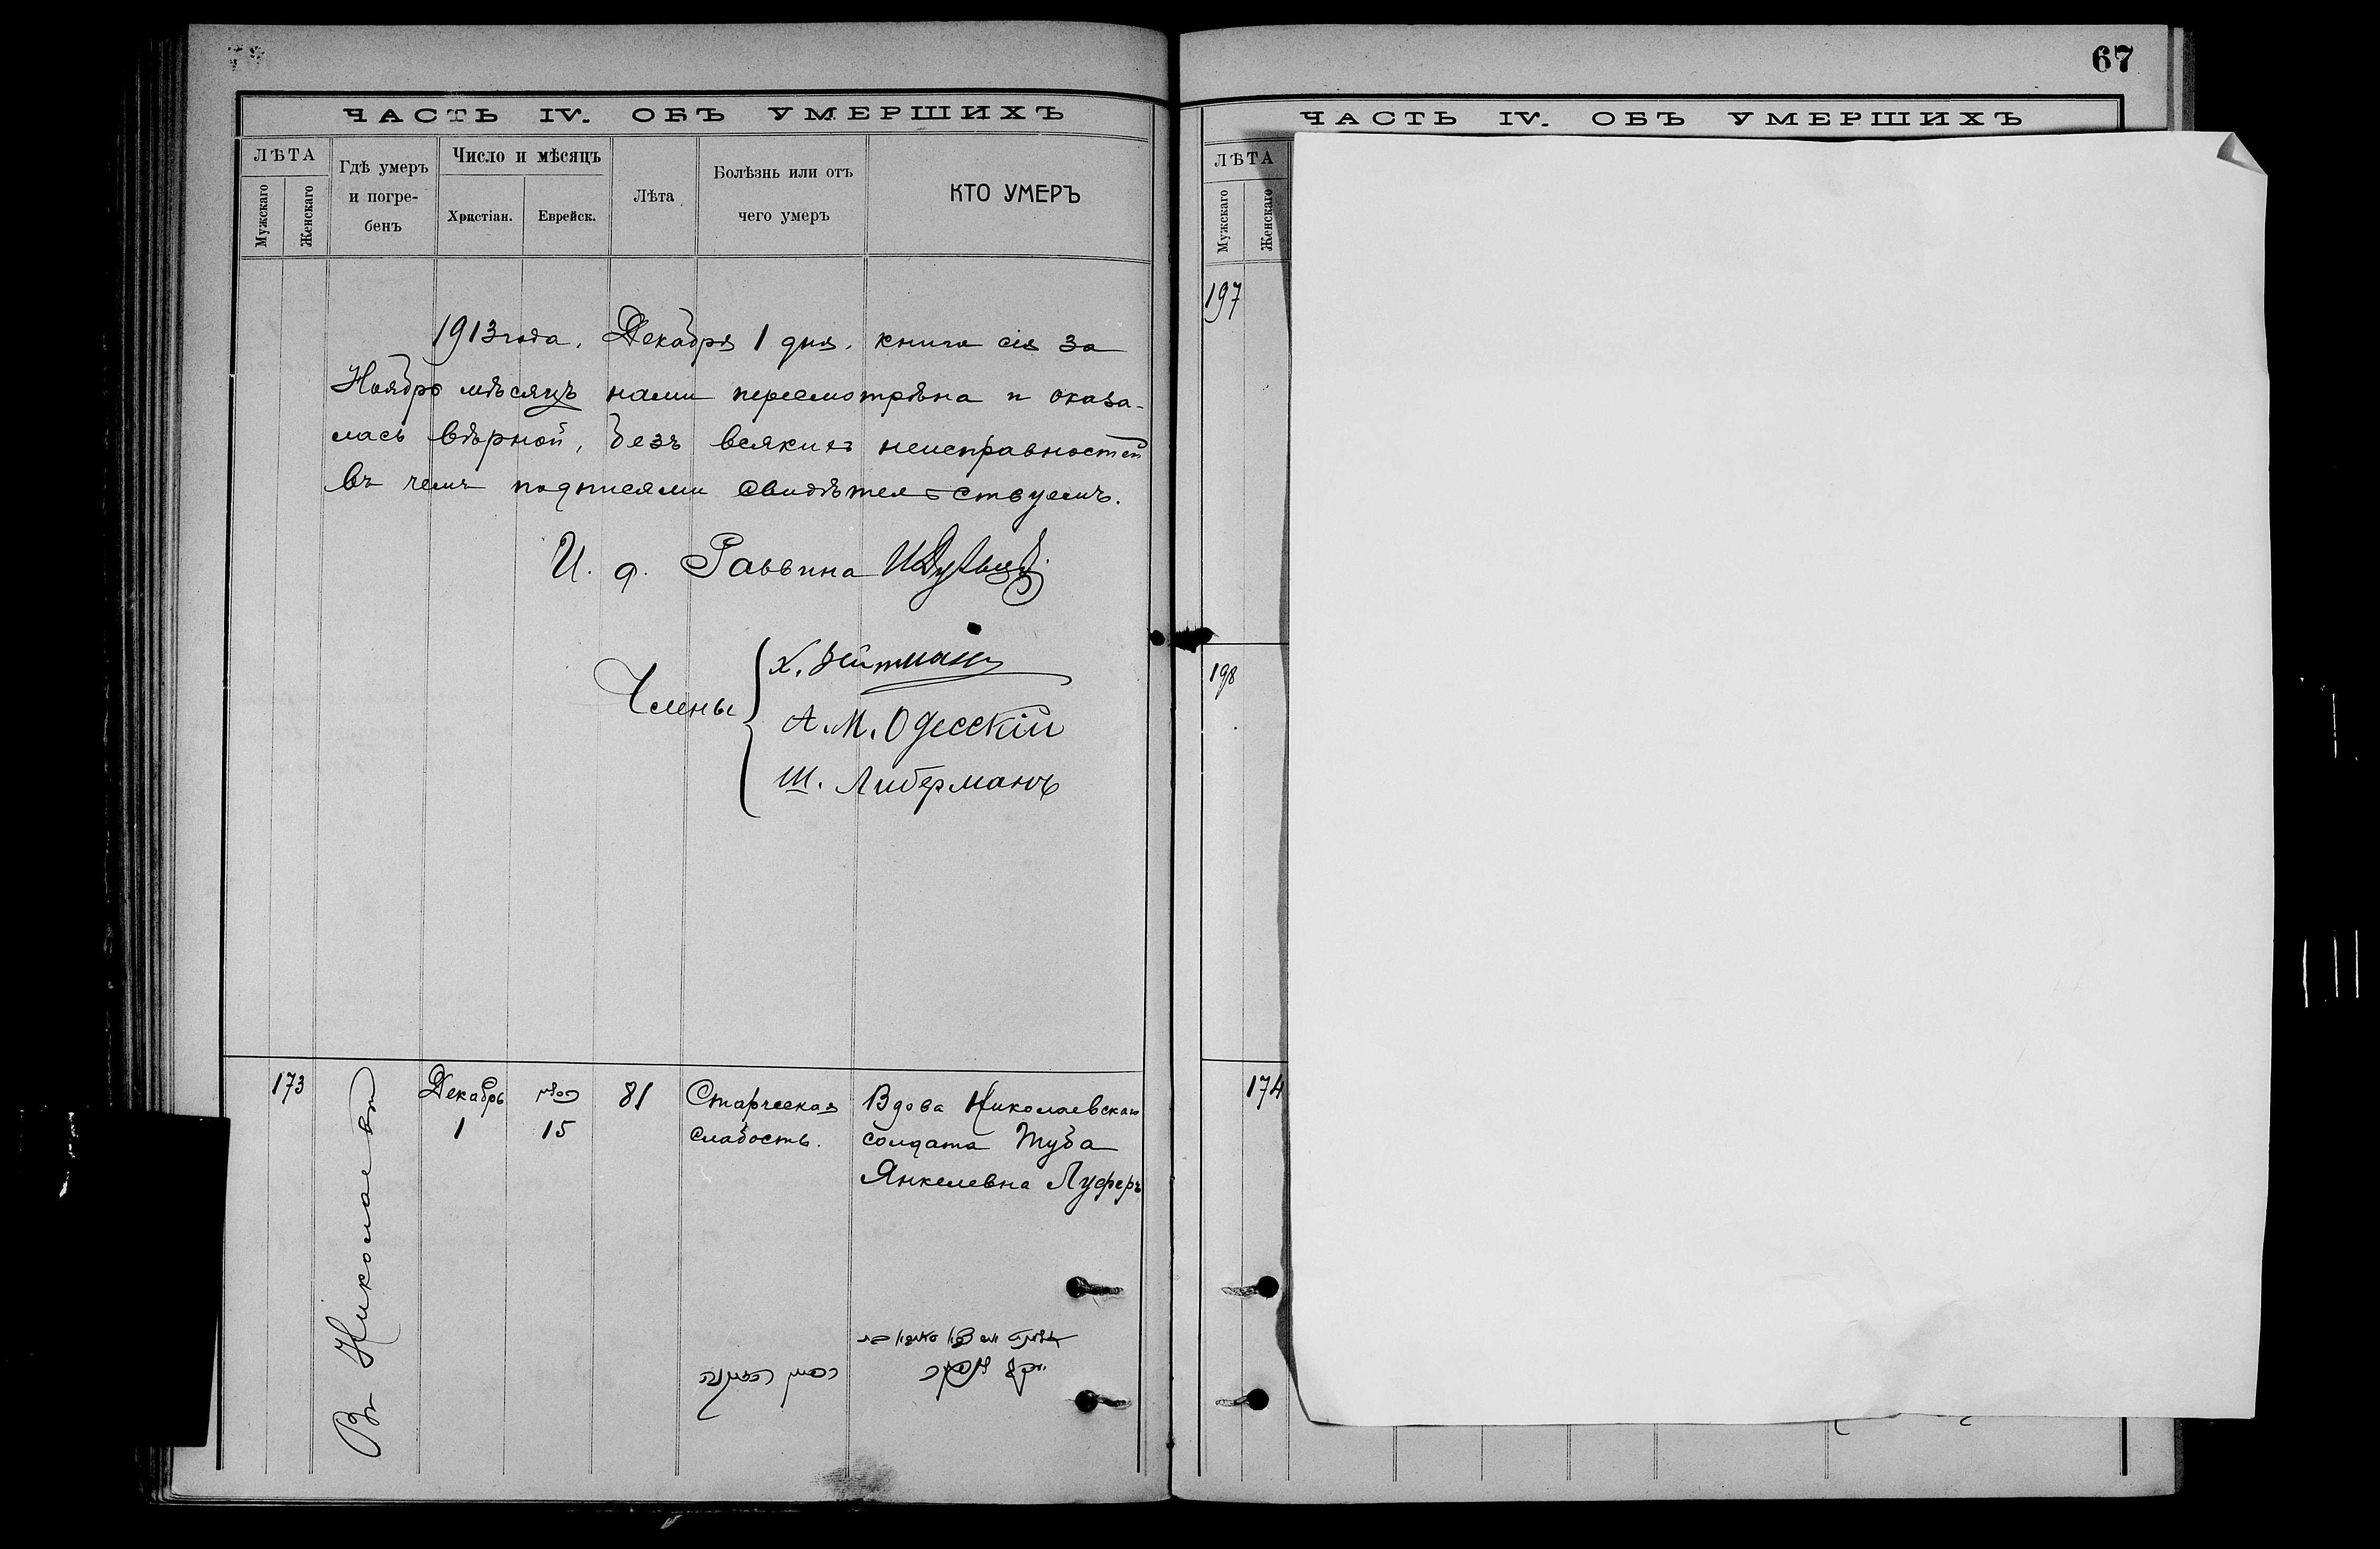 ЧАСТЬ IV. ОБЪ УМЕРШИХЪ
ЛѢТА
Мужскаго
Женскаго
Гдѣ умеръ
и погре-
бенъ
Число и мѣсяцъ
Христіан.
Еврейск.
Лѣта
Болѣзнь или отъ
чего умеръ
КТО УМЕРЪ
1913 года, Декабря 1 дня, книга сія за
Ноябрь мѣсяцъ нами пересмотрѣна и оказа-
лась вѣрной, безъ всякихъ неисправностей
въ чемъ подписями свидѣтельствуемъ.
И. д. Раввина
Члены
Х.
А. М. Одесскій
Ш. Либерманъ
173
Въ Николаевѣ
Декабрь
1
15
81
Старческая
слабость.
Вдова Николаевскаго
солдата Туба
Янкелевна Луферъ
67
ЧАСТЬ IV. ОБЪ УМЕРШИХЪ
ЛѢТА
Мужскаго
Женскаго
197
198
174